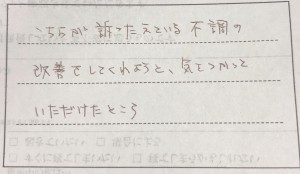 こちらが訴こたえている不調の
改善をしてくれようと、気をつかって
いただけたところ